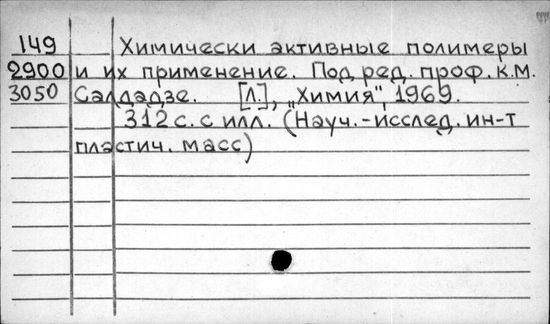 149 Химически активные полимеры
2900 и их применение. Под ред. проф. К.М.
3050 Салдадзе. [Л.], „Химия", 1969.
312 с. с илл. (Науч.-исслед. ин-т
пластич. масс)